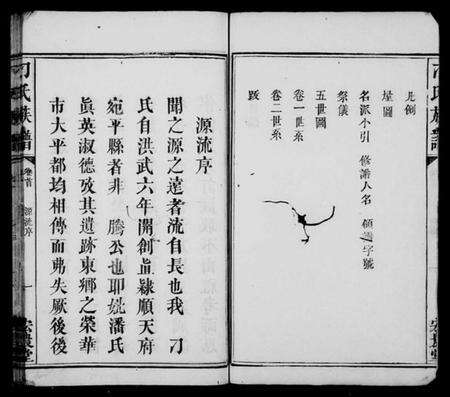 凡例
塋圖
名派小引 修譜人名 領譜字號
祭儀
五世圖
卷一世系
卷二世系
跋
源流序
聞之源之遠者流自長也我 刁
氏自洪武六年開創直隸順天府
宛平縣者非 騰公也耶妣潘氏
眞英淑德攷其遺跡東鄉之榮華
市大平都均相傳而弗失厥後後
刁氏族譜
卷首
源流序
一